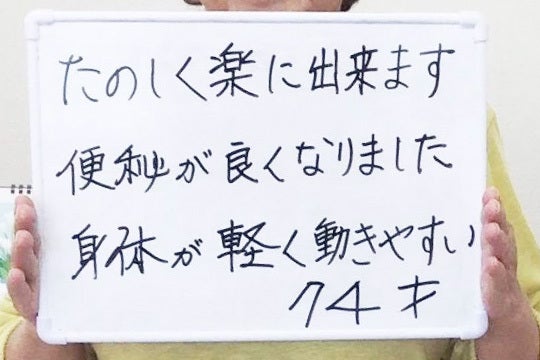 たのしく楽に出来ます
便秘が良くなりました
身体が軽く動きやすい
74才